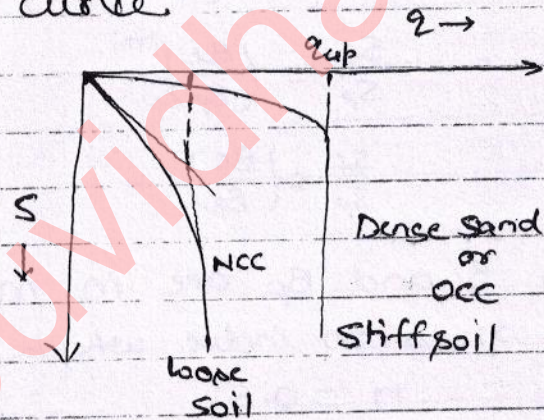 curve
q →
qup
S
↓
NCC
Dense Sand
or
OCC
Stiff soil
loose
soil
uvidha